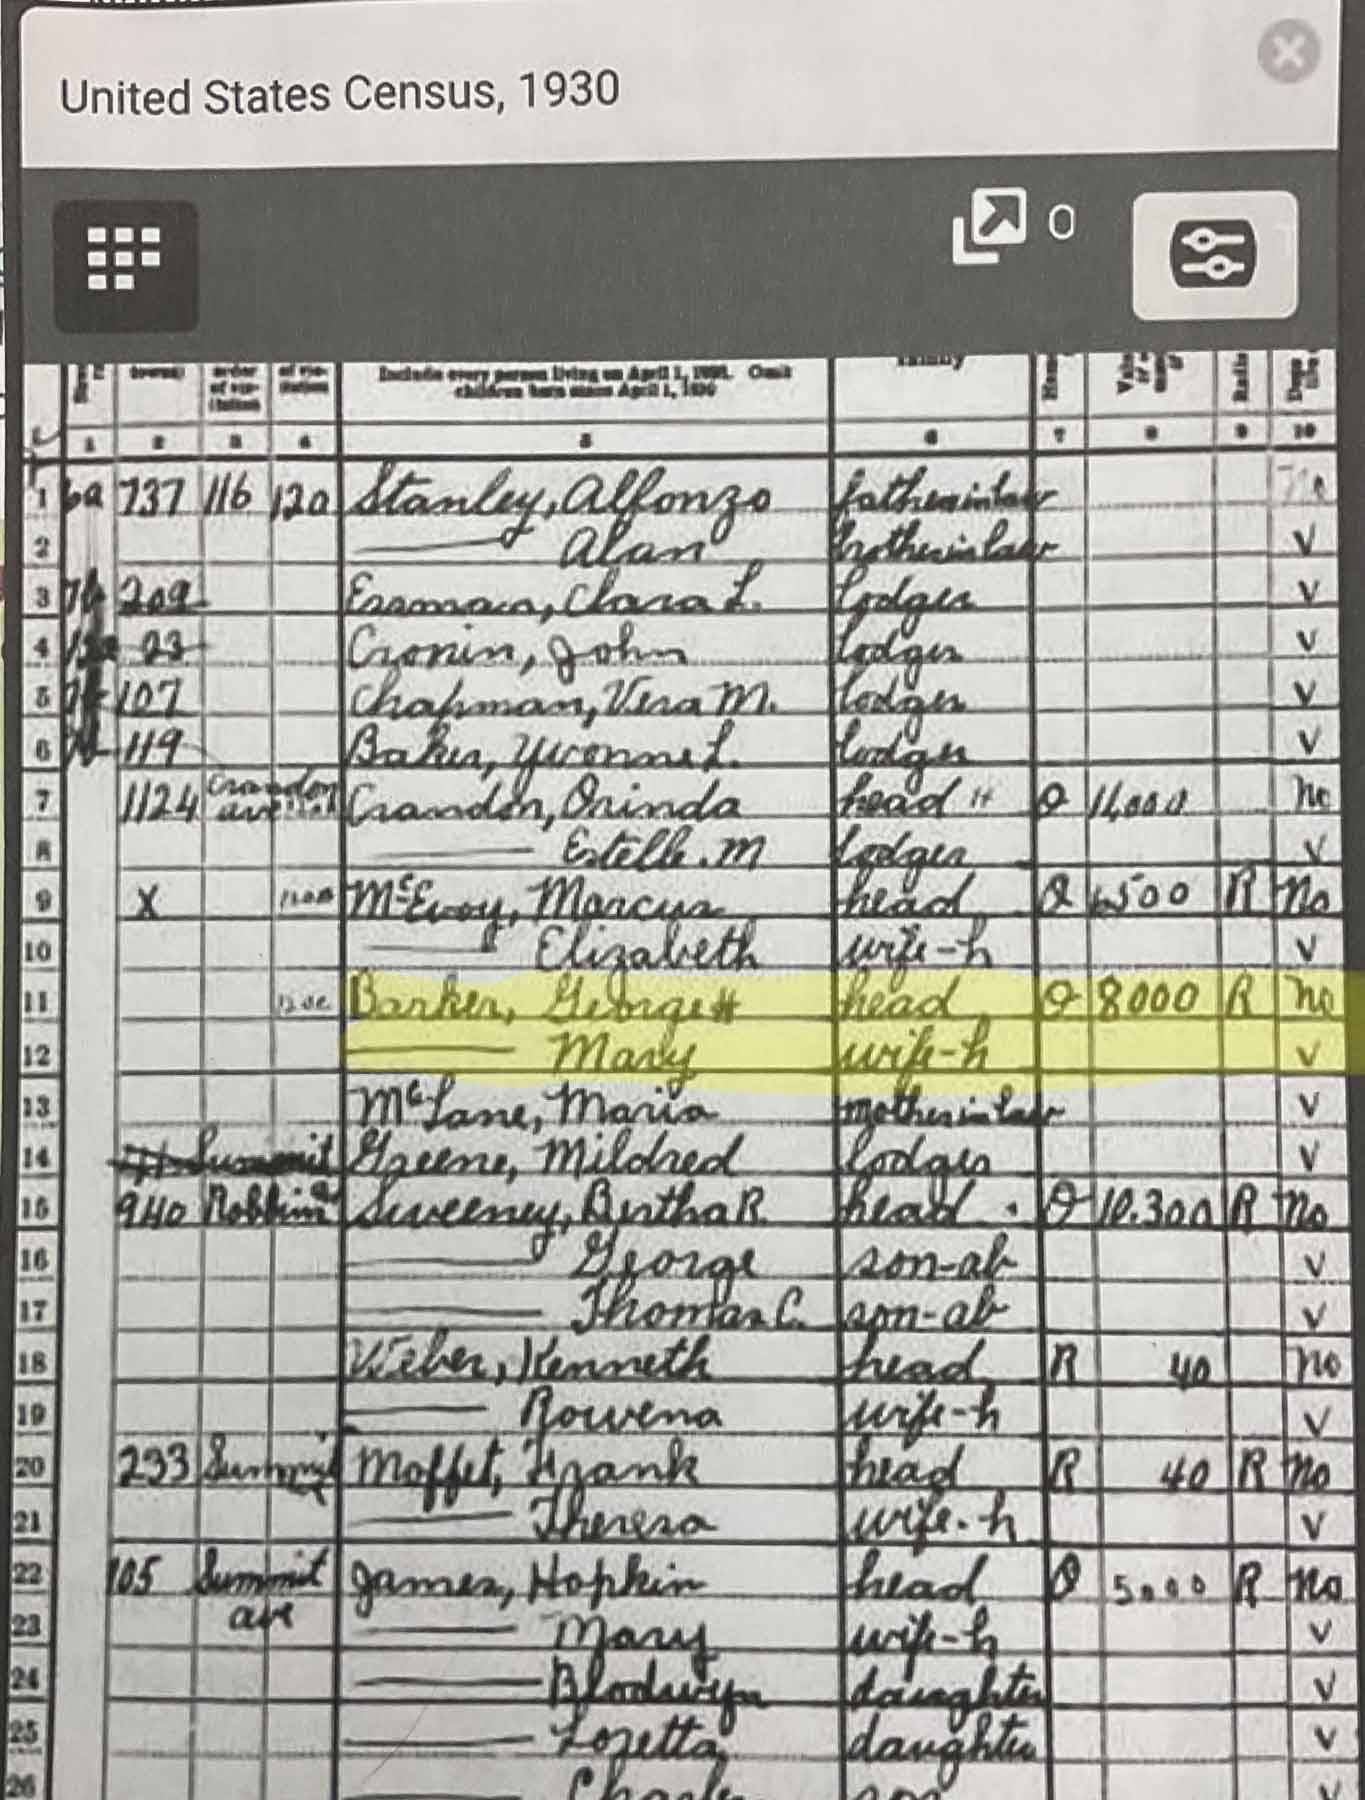 United States Census, 1930
0
family
Include every person living on April 1, 1930. Omit
children born since April 1, 1930
1 2 3 4 5 6 7 8 9 10
1 737 116 120 Stanley, Alfonzo fatherinlaw
2 —— Alan brotherinlaw V
3 209 Clara L. lodger V
4 23 Cronin, John lodger V
5 107 Chapman, Vera M. lodger V
6 119 Baker, Yvonne L. lodger V
7 1124 Crandon ave Crandon, Orinda head H O no
8 —— Estelle. M lodger V
9 X McEvoy, Marcus head O R No
10 —— Elizabeth wife-h V
11 Barker, George H head O 8000 R no
12 —— Mary wife-h V
13 McLane, Maria motherinlaw V
14 Summit Greene, Mildred lodger V
15 940 Robbins Sweeney, Bertha R. head O 10.300 R no
16 —— George son-ab V
17 —— Thomas C. son-ab V
18 Weber, Kenneth head R 40 no
19 —— Rowena wife-h V
20 233 Summit Moffet, Frank head R 40 R no
21 —— Theresa wife-h V
22 105 Summit James, Hopkin head O 5000 R no
23 ave —— Mary wife-h V
24 —— Blodwyn daughter V
25 —— Loretta daughter V
26 son V